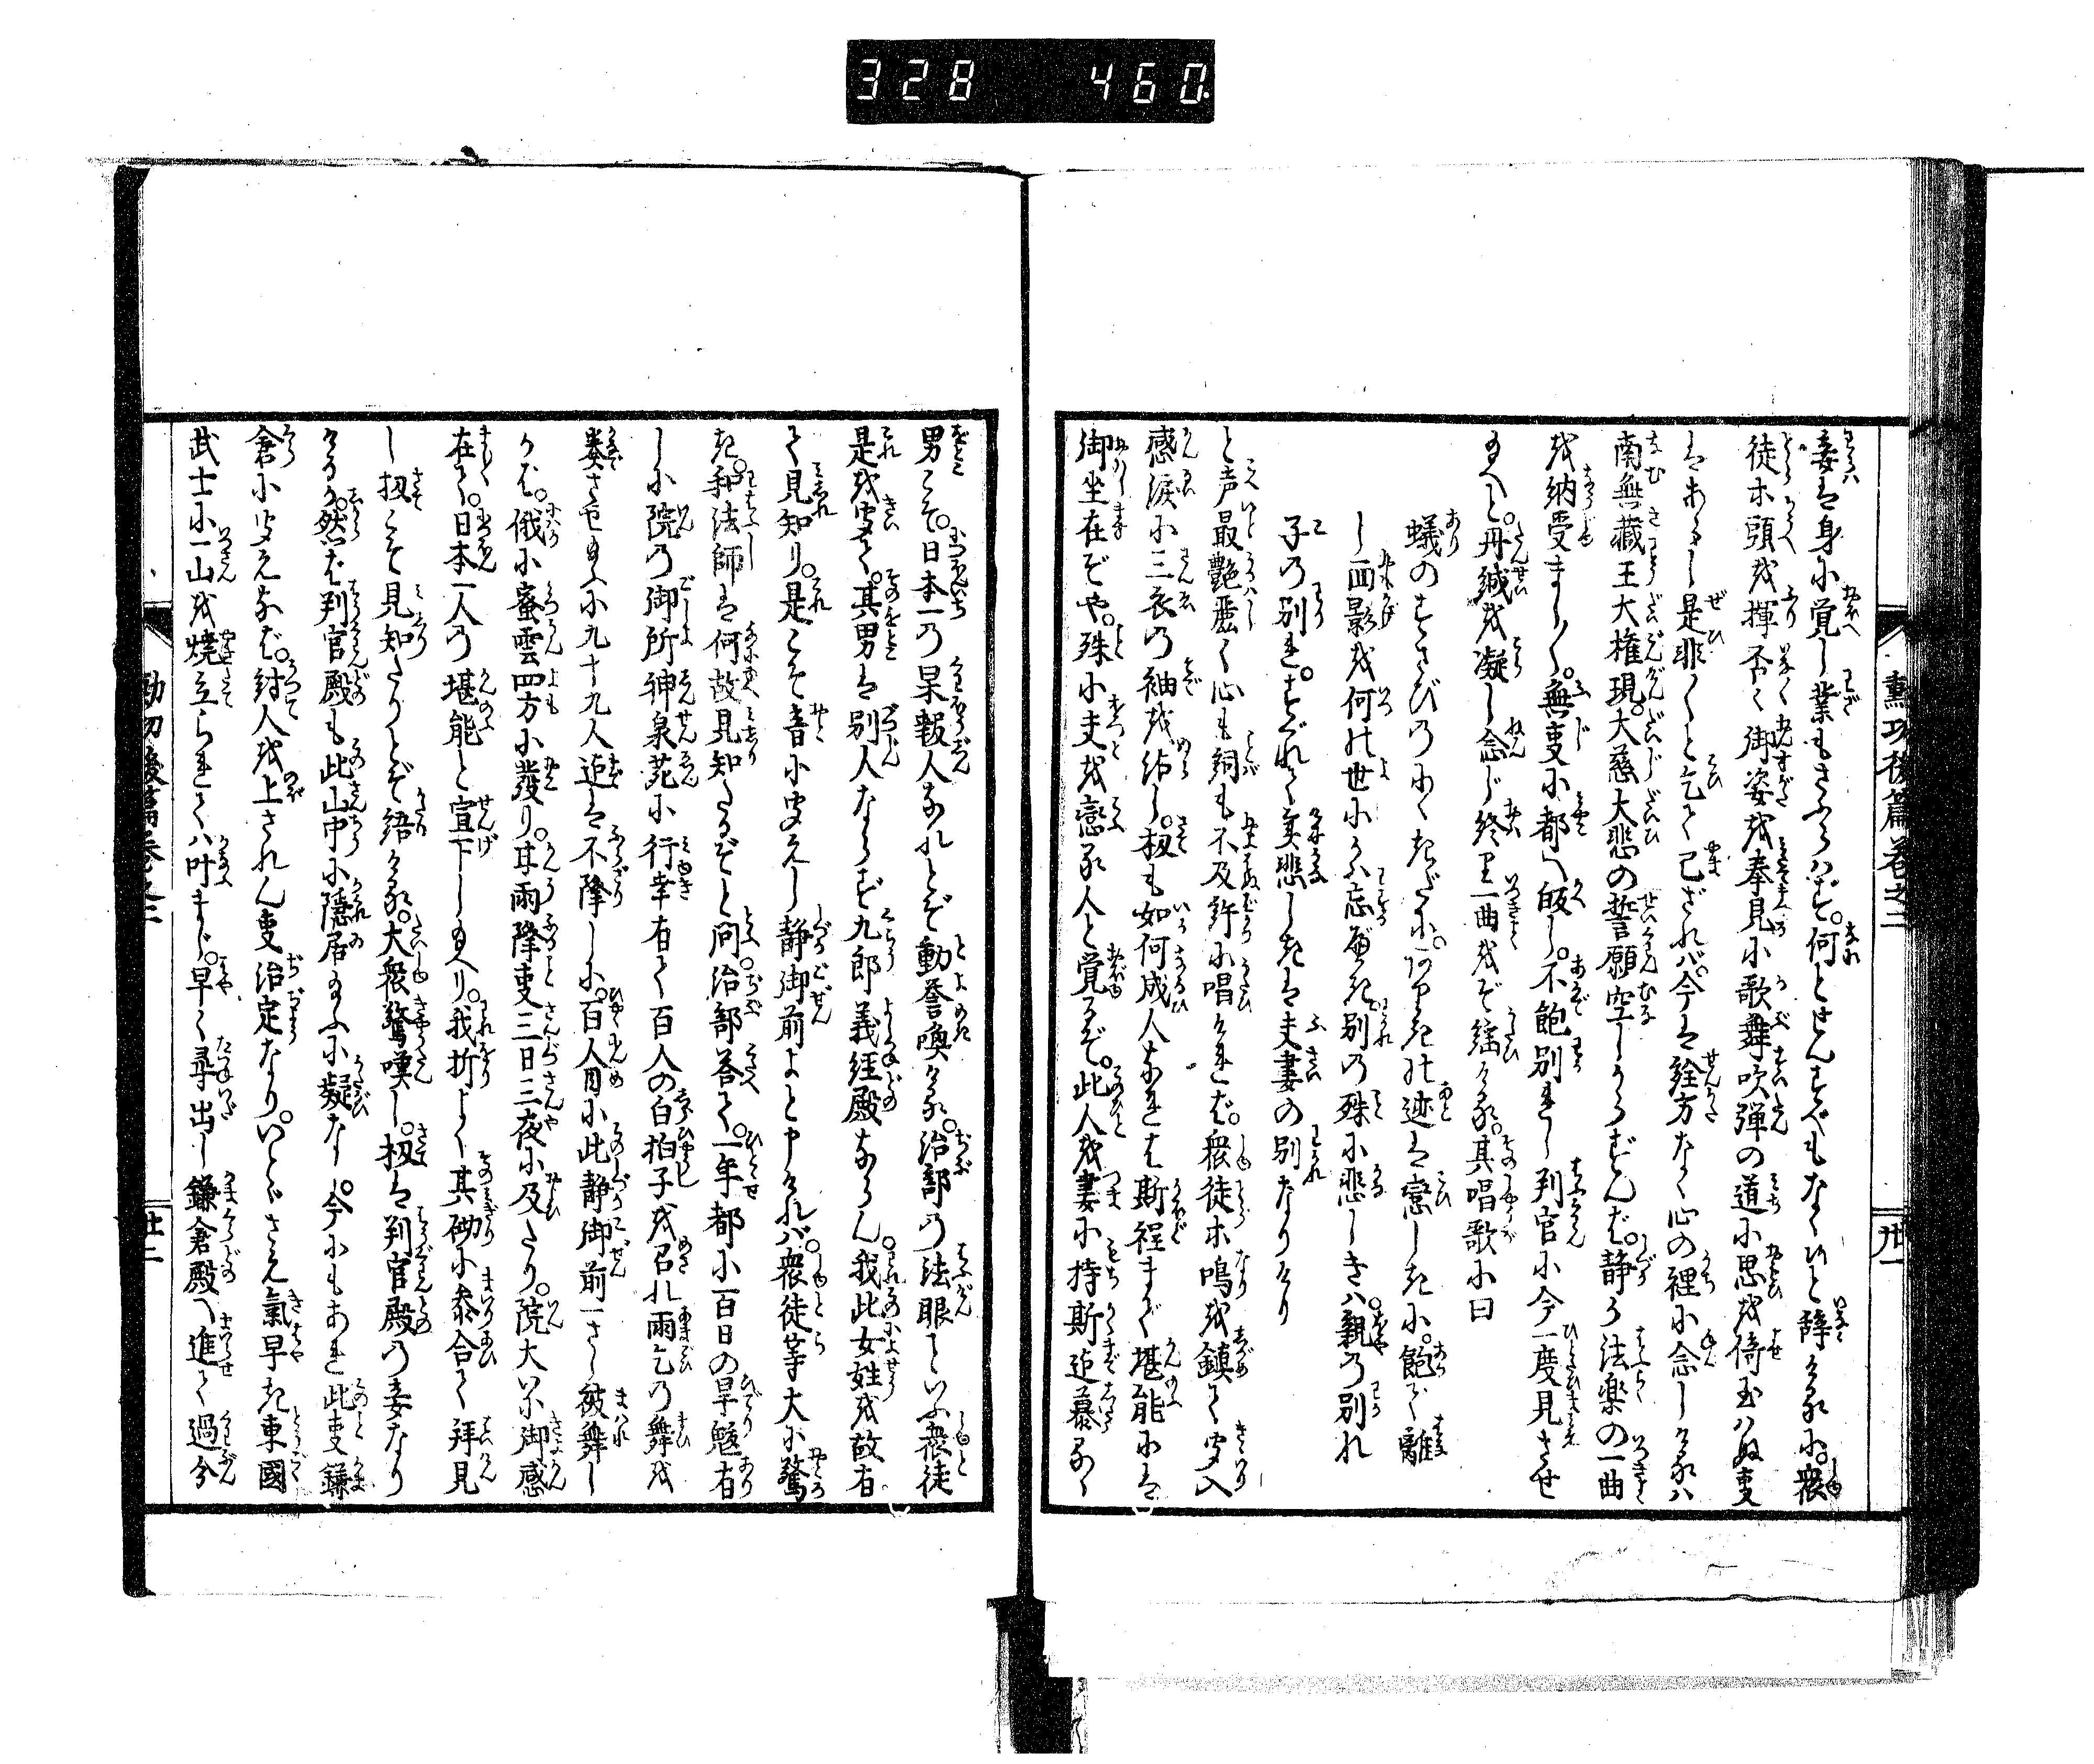 328 460.
勲功後篇巻之二 廿一
妾は身に覚し業もさふらはず。何とせんすべもなくひと辞ける小。衆
徒ホ頭を揮不く御姿を奉見小歌舞吹弾の道小思を倚玉はぬ事
はあるまし是非〳〵と乞て已ざれバ。今は詮方なく心の裡小念しけるハ
南無蔵王大権現。大慈大悲の誓願空しからずんば。静が法楽の一曲
を納受まし〳〵。無事小都へ皈し。不飽別まし判官小今一度見させ
玉へと。丹誠を凝し念じ終里一曲をぞ謡ける。其唱歌小曰
蟻のすさびのにくきだに。ありきの迹は恋しきに。飽で離
し面影を何の世にかは忘べき別の殊に悲しきハ。親の別れ
子の別れ。すぐれて実悲しきは夫妻の別なりけり
と声最艶麗く心も詞も不及許に唱ければ。衆徒ホ鳴を鎮て聞入
感涙に三衣の袖を絞し。扨も如何成人なれば斯程まで堪能には
御坐在ぞや。殊に夫を恋る人と覚るぞ。此人を妻に持斯迄慕るゝ
男こそ。日本一の果報人なれとぞ動誉喚ける。治部の法眼といふ衆徒
是を聞て。其男は別人ならず九郎義経殿ならん。我此女姓を故有
て見知り。是こそ音に聞えし静御前よと申ければ。衆徒等大に驚
き。和法師は何故見知たるぞと問。治部答て。一年都に百日の旱魃有
しに院の御所神泉苑に行幸有て百人の白拍子を召れ雨乞の舞を
奏させ玉ふに九十九人迄は不降しに。百人目に此静御前一さし被舞し
かば。俄に密雲四方に発り。甘雨降事三日三夜に及たり。院大に御感
在て。日本一人の堪能と宣下し玉へり。我折よく其砌に参合て拝見
し扨こそ見知たりとぞ語ける。大衆驚嘆し。扨は判官殿の妾なり
けるか。然ば判官殿も此山中に隠居玉ふに疑なし。今にもあれ此事鎌
倉に聞えなば。討人を上されん事治定なり。いとゞさえ氣早き東國
武士に一山を焼立られては叶まじ。早く尋出し鎌倉殿へ進て過分
勲功後篇巻之二 廿二